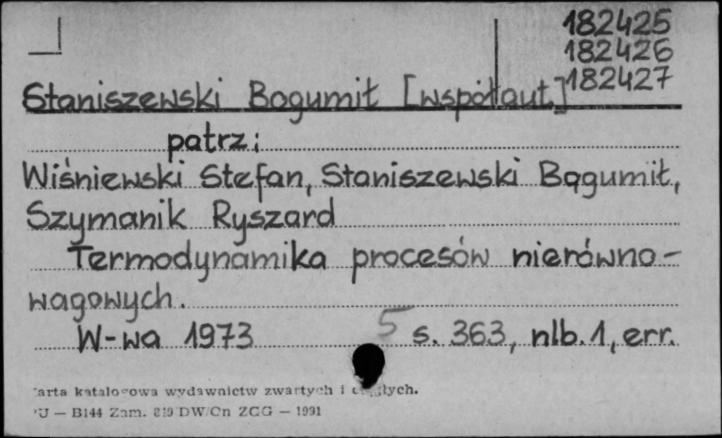 182425
182426
Staniszewski Bogumił [współaut.] 182427
patrz:
Wiśniewski Stefan, Staniszewski Bogumił,
Szymanik Ryszard
Termodynamika procesów nierówno-
wagowych.
W-wa 1973 5 s. 363, nlb. 1, err.
arta katalogowa wydawnictw zwartych i ciągłych.
U — B144 Zam. DW/Cn ZCG — 1991